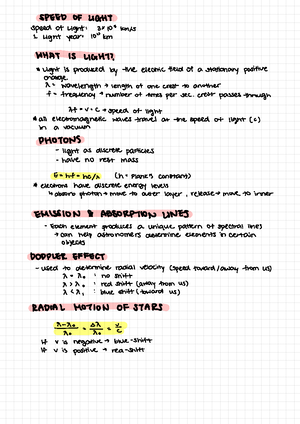 SPEED OF LIGHT
speed of light: 3×10⁸ km/s
1 light year: 10¹³ km
WHAT IS LIGHT?
* Light is produced by the electric field of a stationary positive
charge.
λ = wavelength → length of one crest to another
f = frequency → number of times per sec. crest passes through
λf = v = c → speed of light
* all electromagnetic waves travel at the speed of light (c)
in a vacuum
PHOTONS
- light as discrete particles
- have no rest mass
E = hf = hc/λ (h = Planck's constant)
* electrons have discrete energy levels
↳ absorb photon → move to outer layer, release → move to inner
EMISSION & ABSORPTION LINES
- Each element produces a unique pattern of spectral lines
→ can help astronomers determine elements in certain
objects
DOPPLER EFFECT
- used to determine radial velocity (speed toward/away from us)
λ = λ₀ : no shift
λ > λ₀ : red shift (away from us)
λ < λ₀ : blue shift (toward us)
RADIAL MOTION OF STARS
λ-λ₀/λ₀ = Δλ/λ₀ = v/c
If v is negative → blue-shift
If v is positive → red-shift